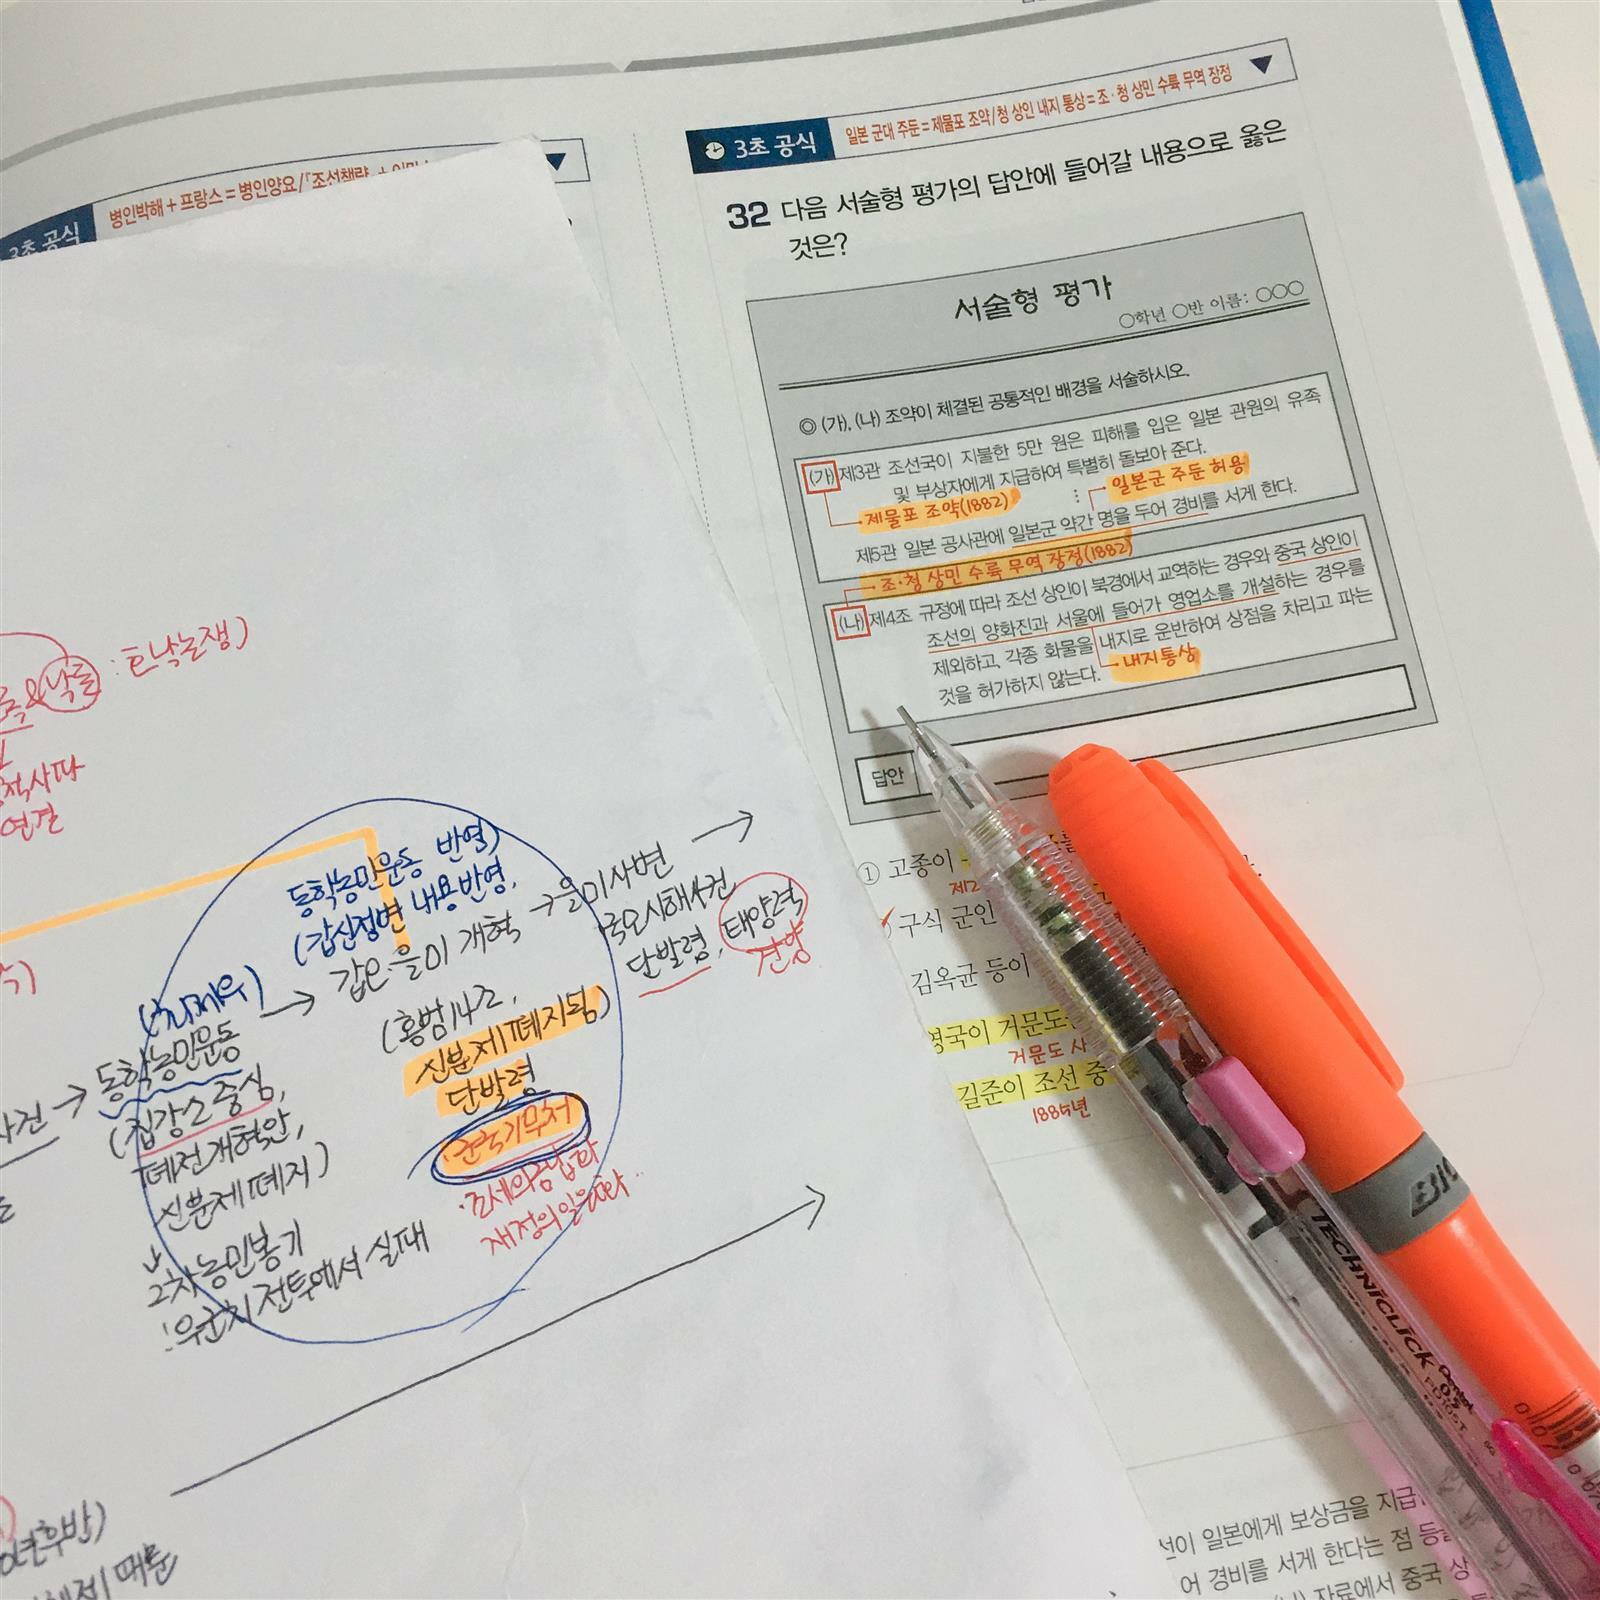 3초 공식
병인박해 + 프랑스 = 병인양요/『조선책략』 +
3초 공식
일본 군대 주둔 = 제물포 조약/청 상인 내지 통상 = 조·청 상민 수륙 무역 장정
32 다음 서술형 평가의 답안에 들어갈 내용으로 옳은
것은?
서술형 평가
○학년 ○반 이름: ○○○
◎ (가), (나) 조약이 체결된 공통적인 배경을 서술하시오.
(가) 제3관 조선국이 지불한 5만 원은 피해를 입은 일본 관원의 유족
및 부상자에게 지급하여 특별히 돌보아 준다.
제물포 조약(1882)
⋮
일본군 주둔 허용
제5관 일본 공사관에 일본군 약간 명을 두어 경비를 서게 한다.
조·청 상민 수륙 무역 장정(1882)
(나) 제4조 규정에 따라 조선 상인이 북경에서 교역하는 경우와 중국 상인이
조선의 양화진과 서울에 들어가 영업소를 개설하는 경우를
제외하고, 각종 화물을 내지로 운반하여 상점을 차리고 파는
것을 허가하지 않는다.
내지통상
답안
① 고종이
제2
구식 군인
김옥균 등이
영국이 거문도
거문도 사
길준이 조선 중
1885년
선이 일본에게 보상금을 지급
어 경비를 서게 한다는 점 등
(나) 자료에서 중국 상
낙론 : 호락논쟁)
척사파
연결
동학농민운동 반영)
(갑신정변 내용반영,
갑오 을미 개혁 → 을미사변 →
국모시해사건
단발령, 태양력
건양
(홍범14조,
신분제 폐지됨)
단발령
군국기무처
·조세의금납화
재정의일원화..
(최제우)
사건 → 동학농민운동 →
(집강소 중심,
폐정개혁안,
신분제 폐지)
2차농민봉기
: 우금치 전투에서 실패
년후반)
때문
BIC
TECHNICLICK
Pentel
0.5
PD105T